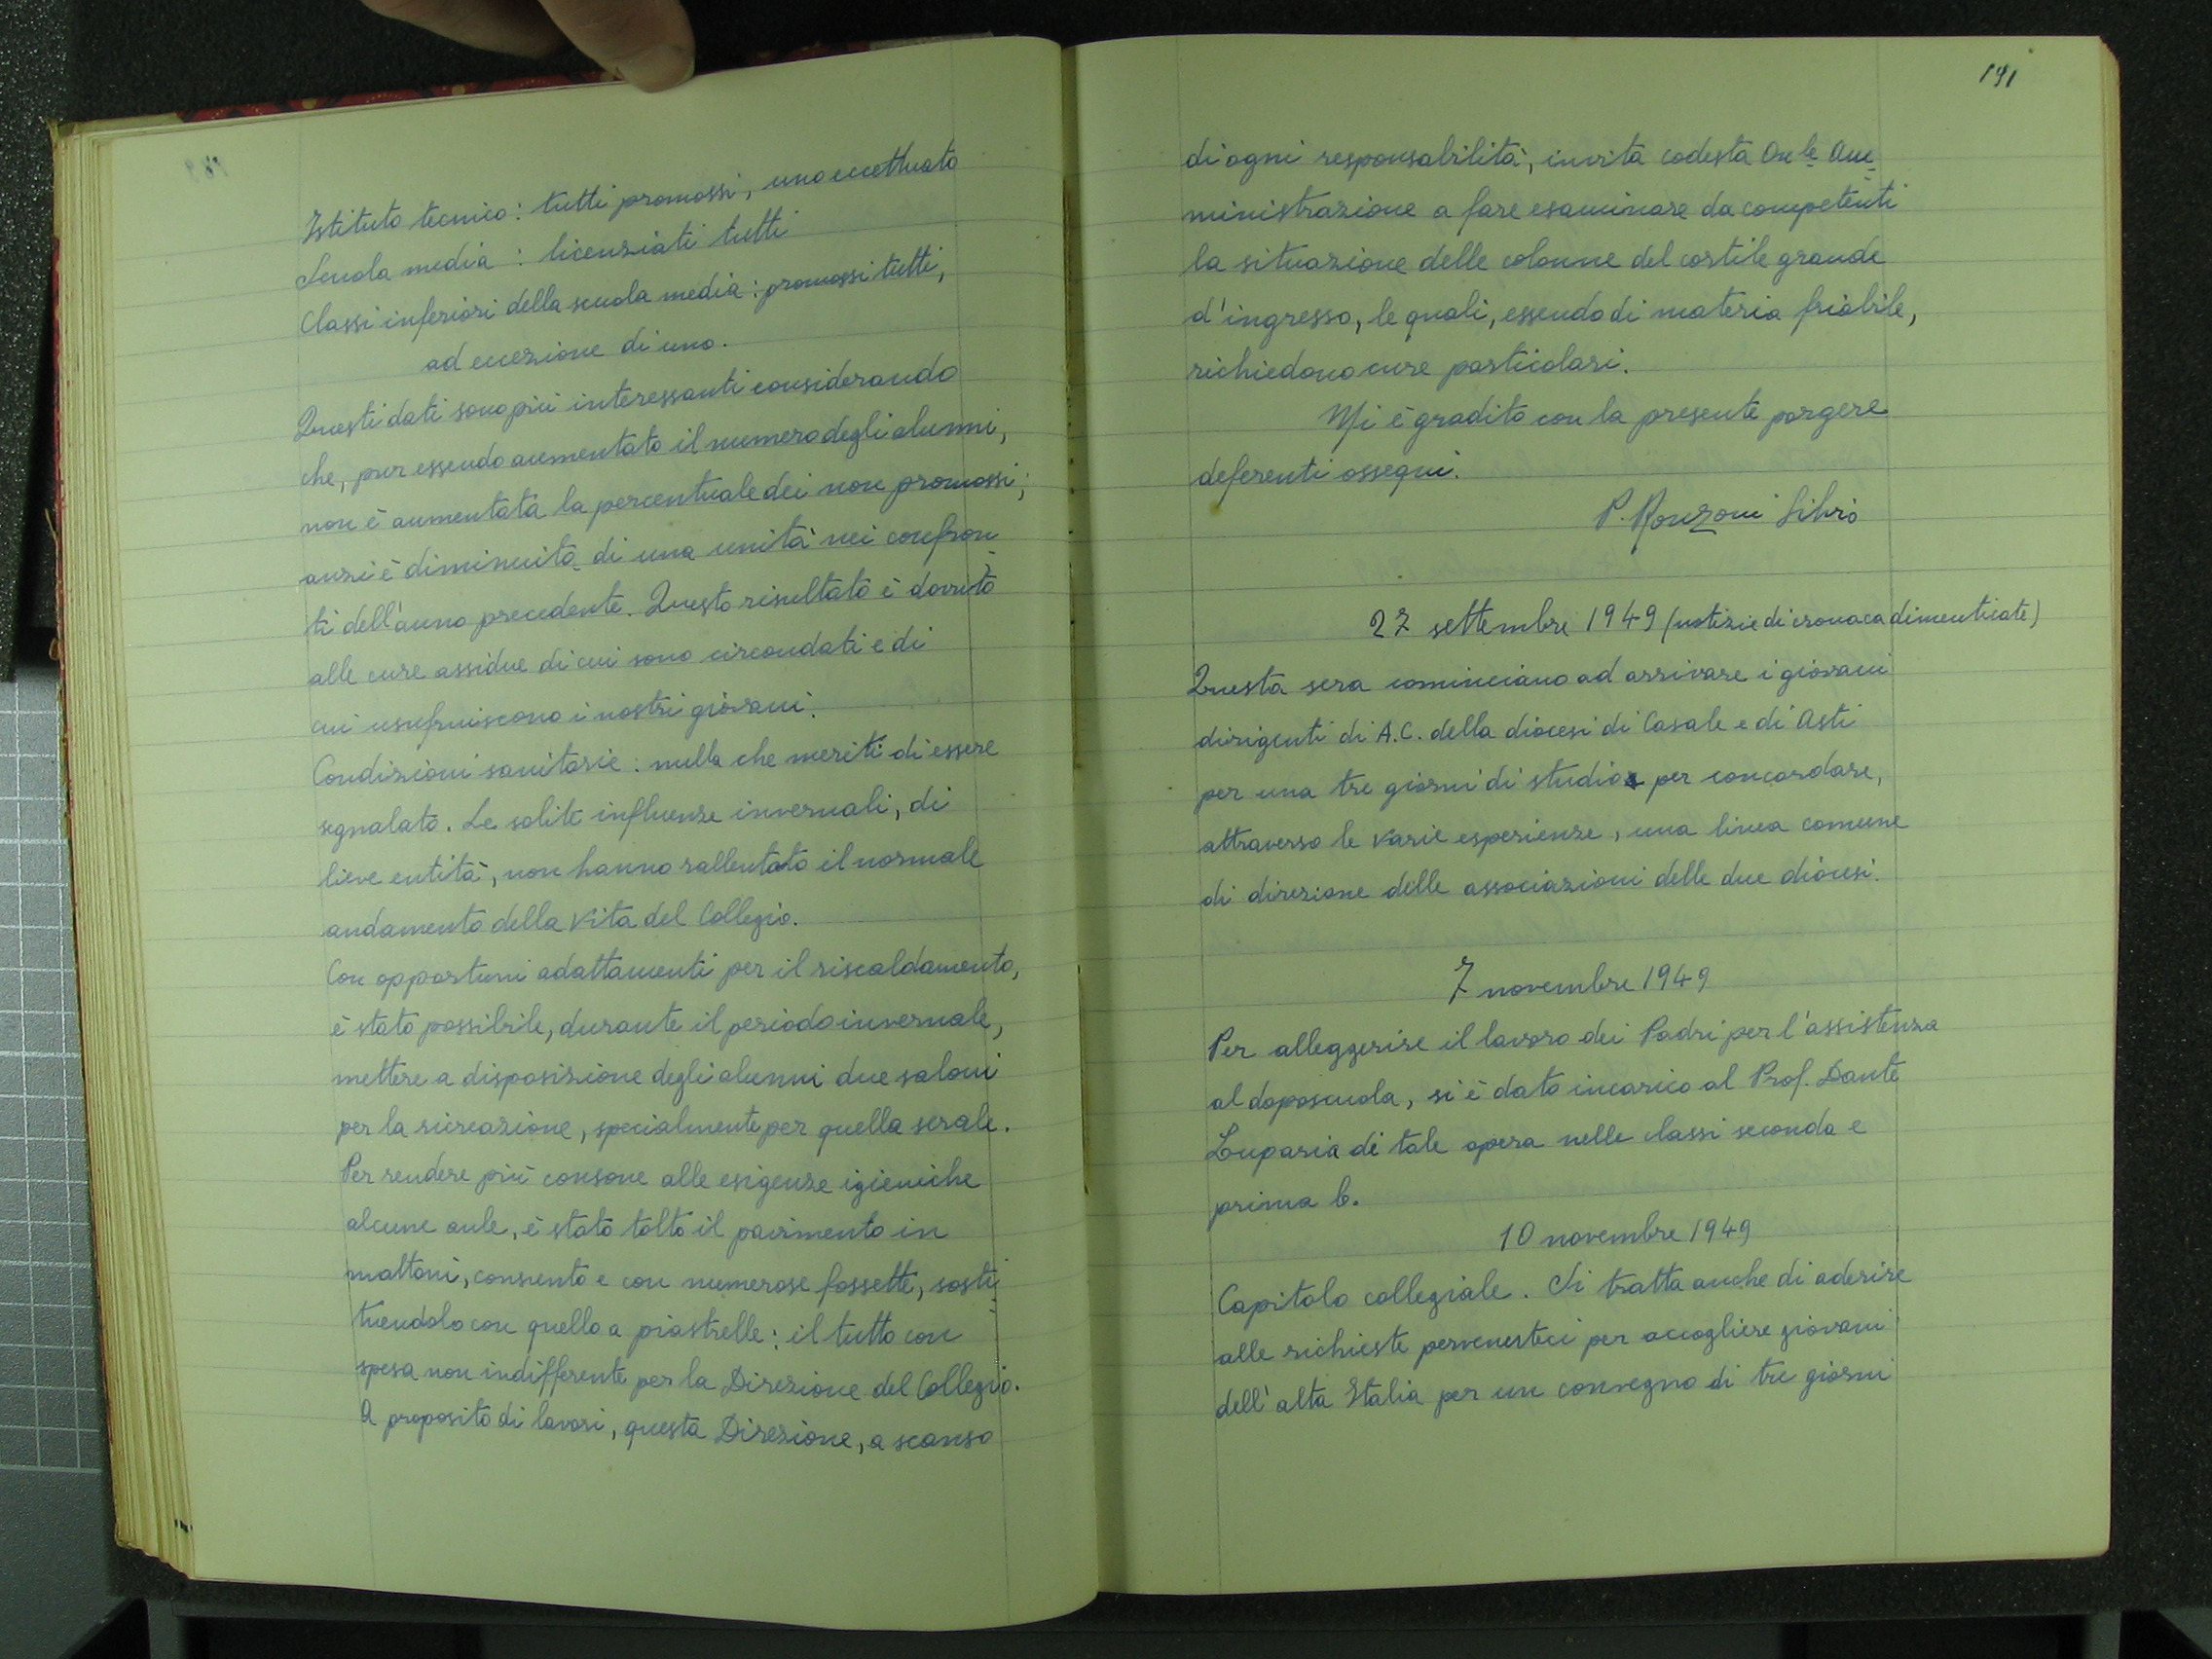 Istituto tecnico: tutti promossi, uno eccettuato
Scuola media: licenziati tutti
Classi inferiori della scuola media: promossi tutti,
ad eccezione di uno.
Questi dati sono più interessanti considerando
che, pur essendo aumentato il numero degli alunni,
non è aumentata la percentuale dei non promossi;
anzi è diminuita di una unità nei confron
ti dell'anno precedente. Questo risultato è dovuto
alle cure assidue di cui sono circondati e di
cui usufruiscono i nostri giovani.
Condizioni sanitarie: nulla che meriti di essere
segnalato. Le solite influenze invernali, di
lieve entità, non hanno rallentato il normale
andamento della vita del Collegio.
Con opportuni adattamenti per il riscaldamento,
è stato possibile, durante il periodo invernale,
mettere a disposizione degli alunni due saloni
per la ricreazione, specialmente per quella serale.
Per rendere più consone alle esigenze igieniche
alcune aule, è stato tolto il pavimento in
mattoni, consunto e con numerose fossette, sosti
tuendolo con quello a piastrelle: il tutto con
spesa non indifferente per la Direzione del Collegio.
A proposito di lavori, questa Direzione, a scanso
191
di ogni responsabilità, invita codesta On.le Am
ministrazione a fare esaminare da competenti
la situazione delle colonne del cortile grande
d'ingresso, le quali, essendo di materia friabile,
richiedono cure particolari.
Mi è gradito con la presente porgere
deferenti ossequi.
P. Ronzoni Silvio
27 settembre 1949 (notizie di cronaca dimenticate)
Questa sera cominciano ad arrivare i giovani
dirigenti di A.C. della diocesi di Casale e di Asti
per una tre giorni di studio per concordare,
attraverso le varie esperienze, una linea comune
di direzione delle associazioni delle due diocesi.
7 novembre 1949
Per alleggerire il lavoro dei Padri per l'assistenza
al doposcuola, si è dato incarico al Prof. Dante
Luparia di tale opera nelle classi seconda e
prima b.
10 novembre 1949
Capitolo collegiale. Si tratta anche di aderire
alle richieste pervenuteci per accogliere giovani
dell'alta Italia per un convegno di tre giorni